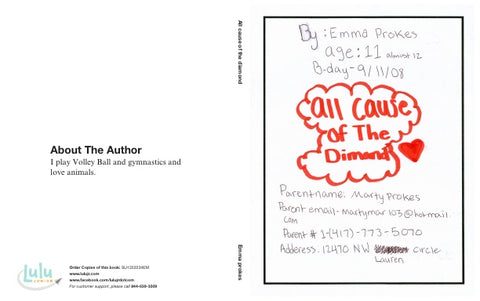 About The Author
I play Volley Ball and gymnastics and
love animals.
lulu
JUNIOR
Order Copies of this book:
www.lulujr.com
www.facebook.com/lulujrdotcom
For customer support, please call
All cause of the diamond
Emma prokes
By: Emma Prokes
age: 11 almost 12
B-day-9/11/08
all Cause
Of The
Dimand
Parentname: Marty Prokes
Parent email-martymar103@hotmail.
com
Parent # 1-(417)-773-5070
Adderess. 12470 NW Circle
Lauren